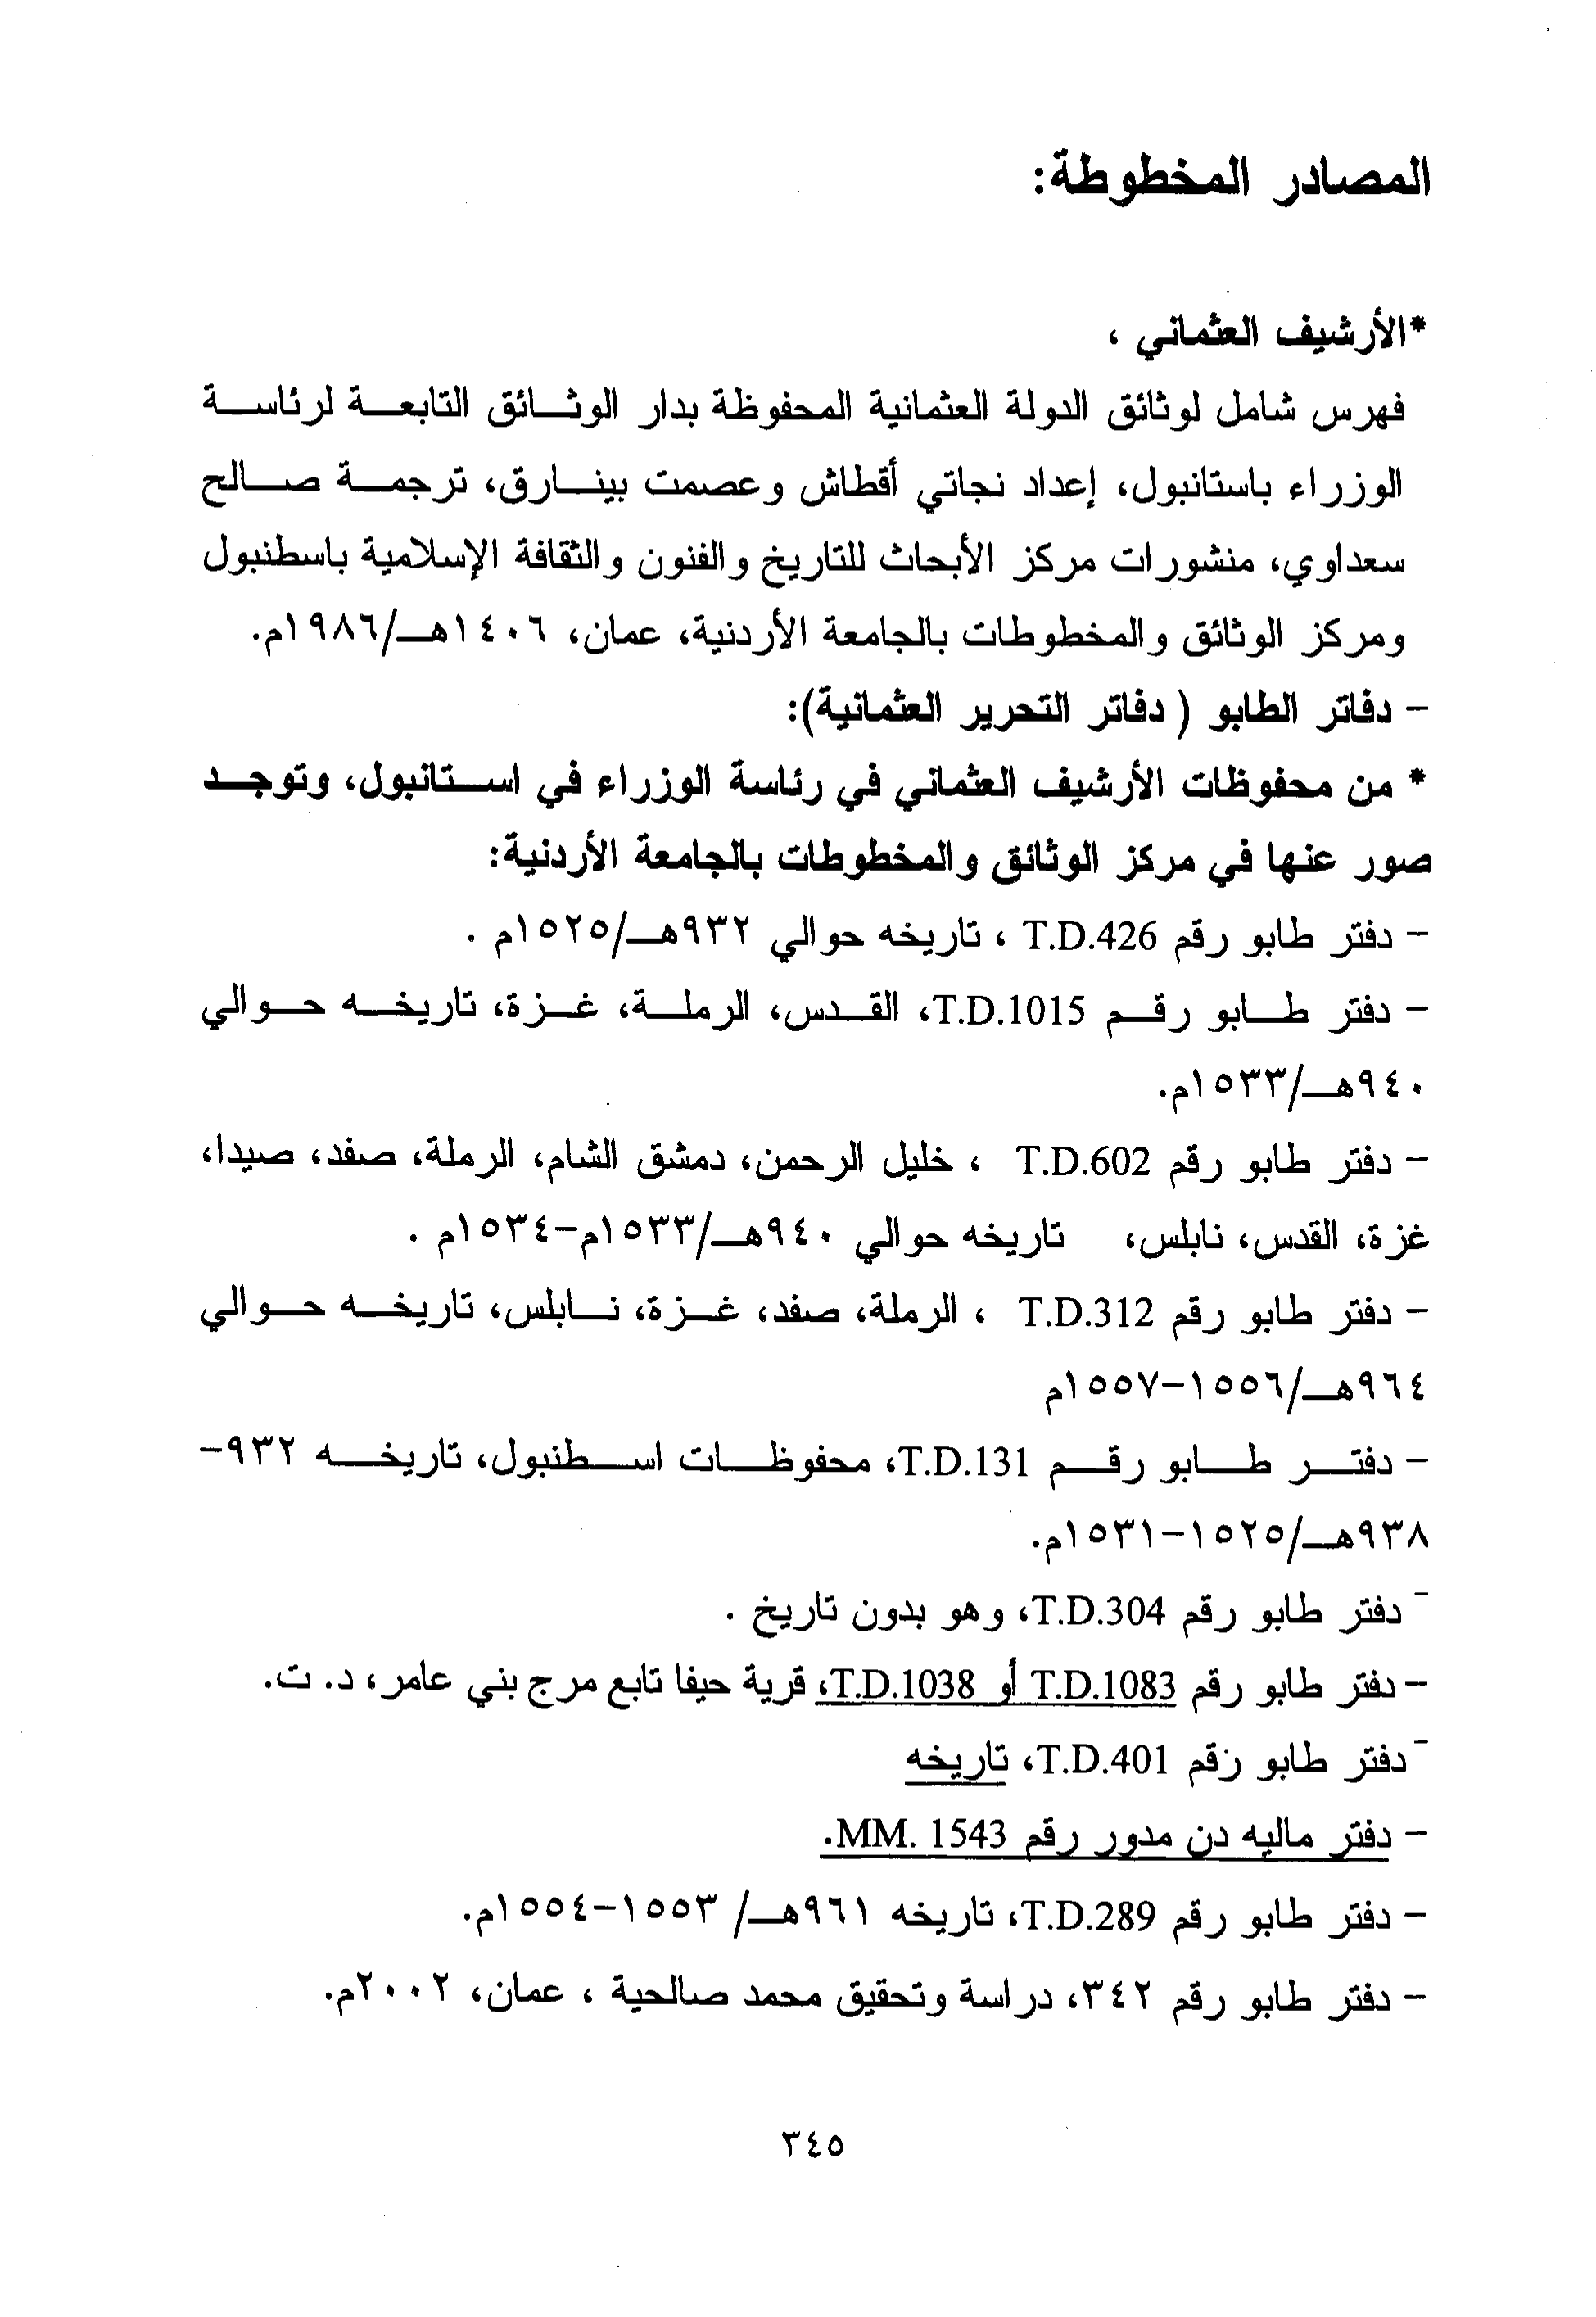 المصادر المخطوطة:
*الأرشيف العثماني ،
فهرس شامل لوثائق الدولة العثمانية المحفوظة بدار الوثائق التابعة لرئاسة
الوزراء باستانبول، إعداد نجاتي أقطاش وعصمت بينارق، ترجمة صالح
سعداوي، منشورات مركز الأبحاث للتاريخ والفنون والثقافة الإسلامية باسطنبول
ومركز الوثائق والمخطوطات بالجامعة الأردنية، عمان، ١٤٠٦هـ/١٩٨٦م.
- دفاتر الطابو ( دفاتر التحرير العثمانية):
* من محفوظات الأرشيف العثماني في رئاسة الوزراء في استانبول، وتوجد
صور عنها في مركز الوثائق والمخطوطات بالجامعة الأردنية:
- دفتر طابو رقم T.D.426 ، تاريخه حوالي ٩٣٢هـ/١٥٢٥م .
- دفتر طابو رقم T.D.1015، القدس، الرملة، غزة، تاريخه حوالي
٩٤٠هـ/١٥٣٣م.
- دفتر طابو رقم T.D.602 ، خليل الرحمن، دمشق الشام، الرملة، صفد، صيدا،
غزة، القدس، نابلس، تاريخه حوالي ٩٤٠هـ/١٥٣٣م-١٥٣٤م .
- دفتر طابو رقم T.D.312 ، الرملة، صفد، غزة، نابلس، تاريخه حوالي
٩٦٤هـ/١٥٥٦-١٥٥٧م
- دفتر طابو رقم T.D.131، محفوظات اسطنبول، تاريخه ٩٣٢-
٩٣٨هـ/١٥٢٥-١٥٣١م.
- دفتر طابو رقم T.D.304، وهو بدون تاريخ .
- دفتر طابو رقم T.D.1083 أو T.D.1038، قرية حيفا تابع مرج بني عامر، د. ت.
- دفتر طابو رقم T.D.401، تاريخه
- دفتر ماليه دن مدور رقم MM. 1543.
- دفتر طابو رقم T.D.289، تاريخه ٩٦١هـ/ ١٥٥٣-١٥٥٤م.
- دفتر طابو رقم ٣٤٢، دراسة وتحقيق محمد صالحية ، عمان، ٢٠٠٢م.
٣٤٥